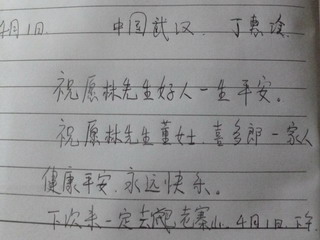 4月1日. 中国武汉. 丁惠
祝愿林先生好人一生平安。
祝愿林先生董女士.喜多郎一家人
健康平安.永远快乐。
下次来一定去老寨山.4月1日.下午